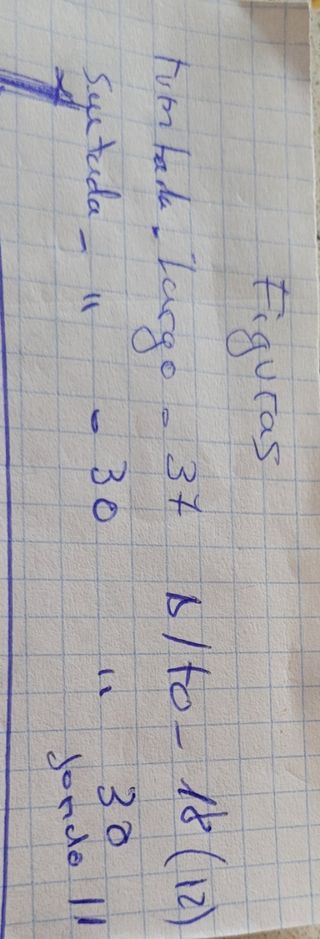 Figuras
Tumbada - largo - 37 Alto - 18 (12)
Sentada - " - 30 " 30
fondo 11